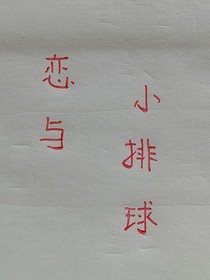 恋与
小排球